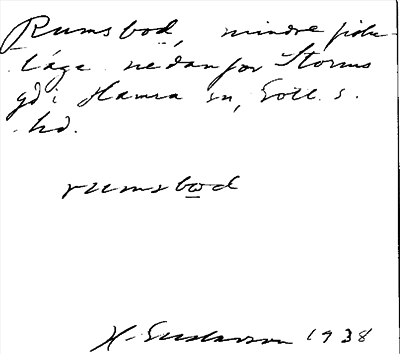 Rumsbod, mindre fiske-
läge nedanför Storms
gd i Hamra sn, Gotl. s.
hd.
rumsbod
H. Gustavson 1938